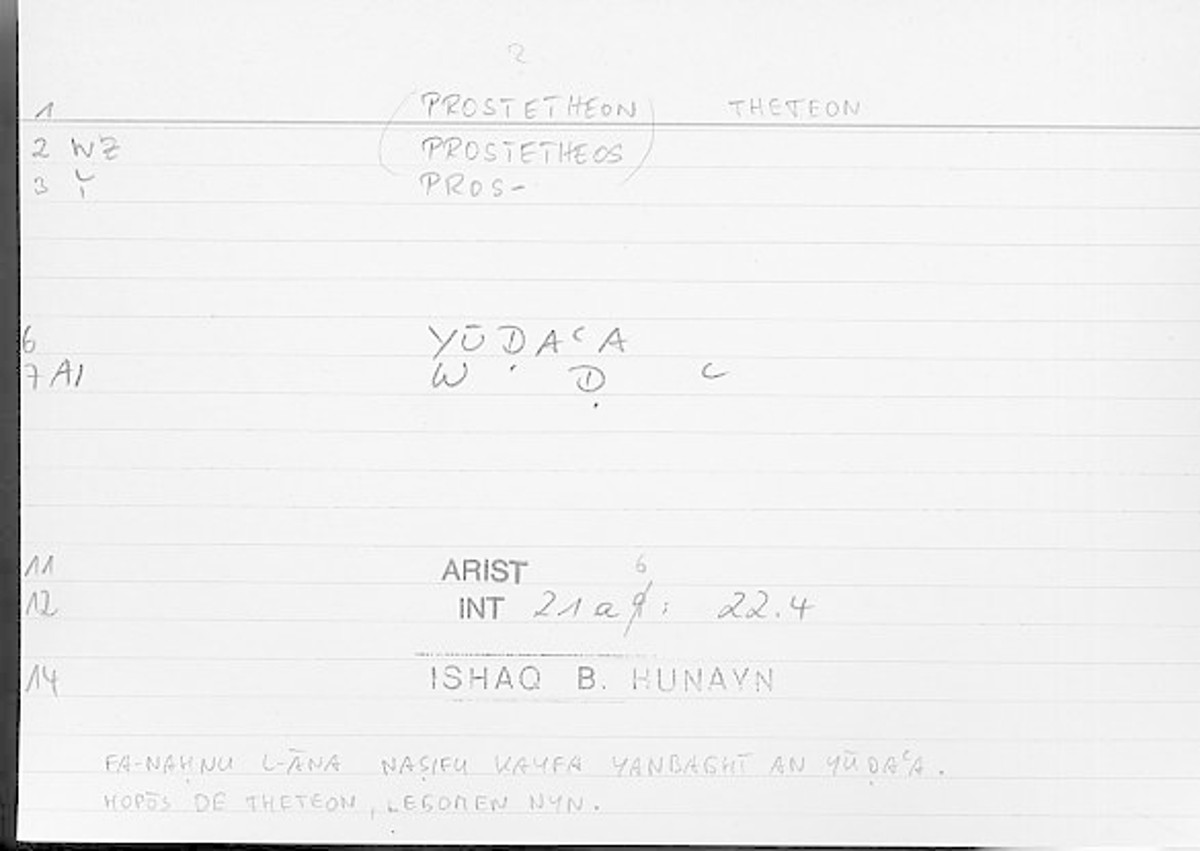 2
1 (PROSTETHEON) THETEON
2 WZ (PROSTETHEOS)
3 PROS-
6 YŪḌAʿA
7 A1 W Ḍ ʿ
11 ARIST 6
12 INT 21a9: 22.4
14 ISHAQ B. HUNAYN
FA-NAḤNU L-ĀNA NAṢIFU KAYFA YANBAGHĪ AN YŪḌAʿA.
HOPŌS DE THETEON, LEGOMEN NYN.